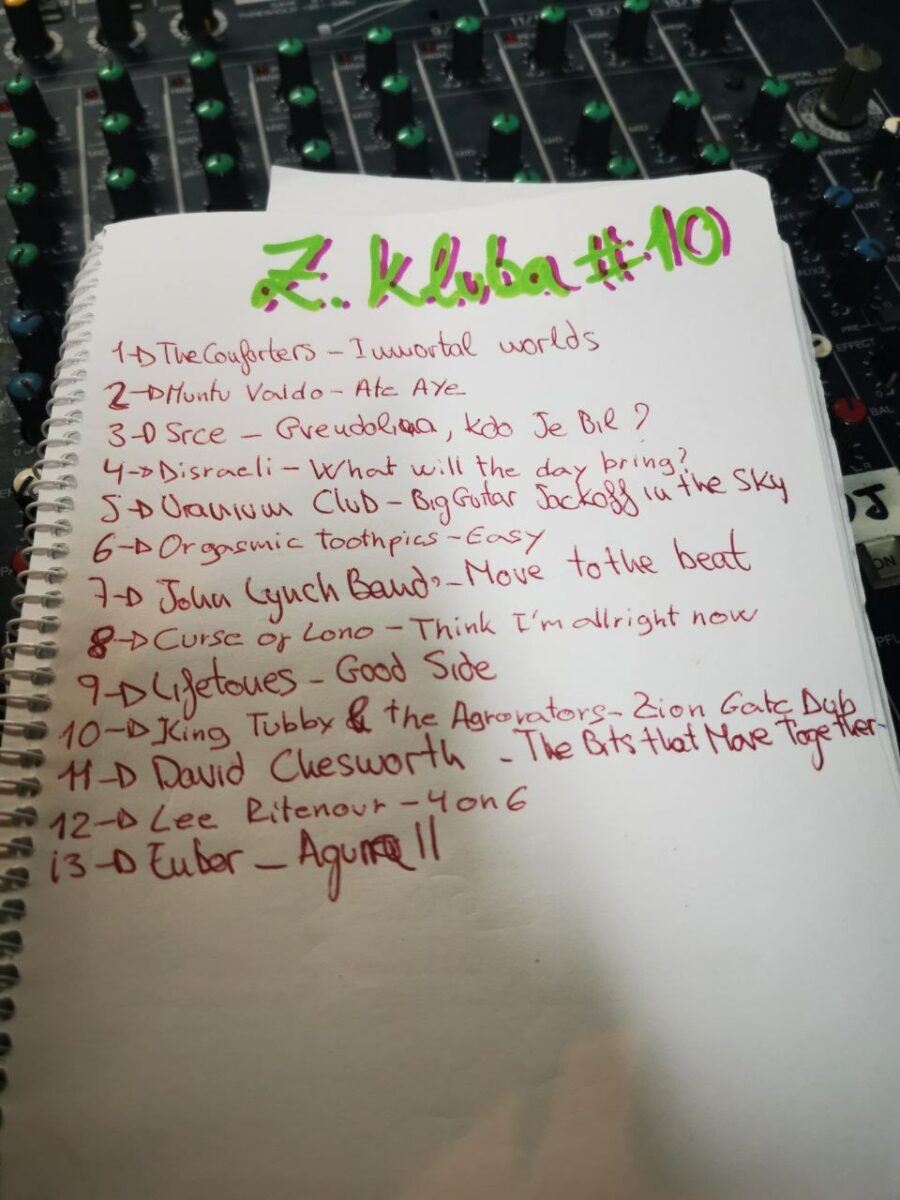 Z. Kluba #10
1→ The Conforters - Immortal worlds
2→ Muntu Valdo - Ate AYe
3→ Srce - Gvendolina, kdo Je Bil?
4→ Disraeli - What will the day bring?
5→ Uranium Club - Big Guitar Jackoff in the Sky
6→ Orgasmic toothpics - Easy
7→ John Lynch Band - Move to the beat
8→ Curse of Lono - Think I'm allright now
9→ Lifetones - Good Side
10→ King Tubby & the Agrovators - Zion Gate Dub
11→ David Chesworth - The Bits that Move Together
12→ Lee Ritenour - 4 on 6
13→ Ember - II
DJ
ON
EFFECT
BAL
PFL
PRE
AUX2